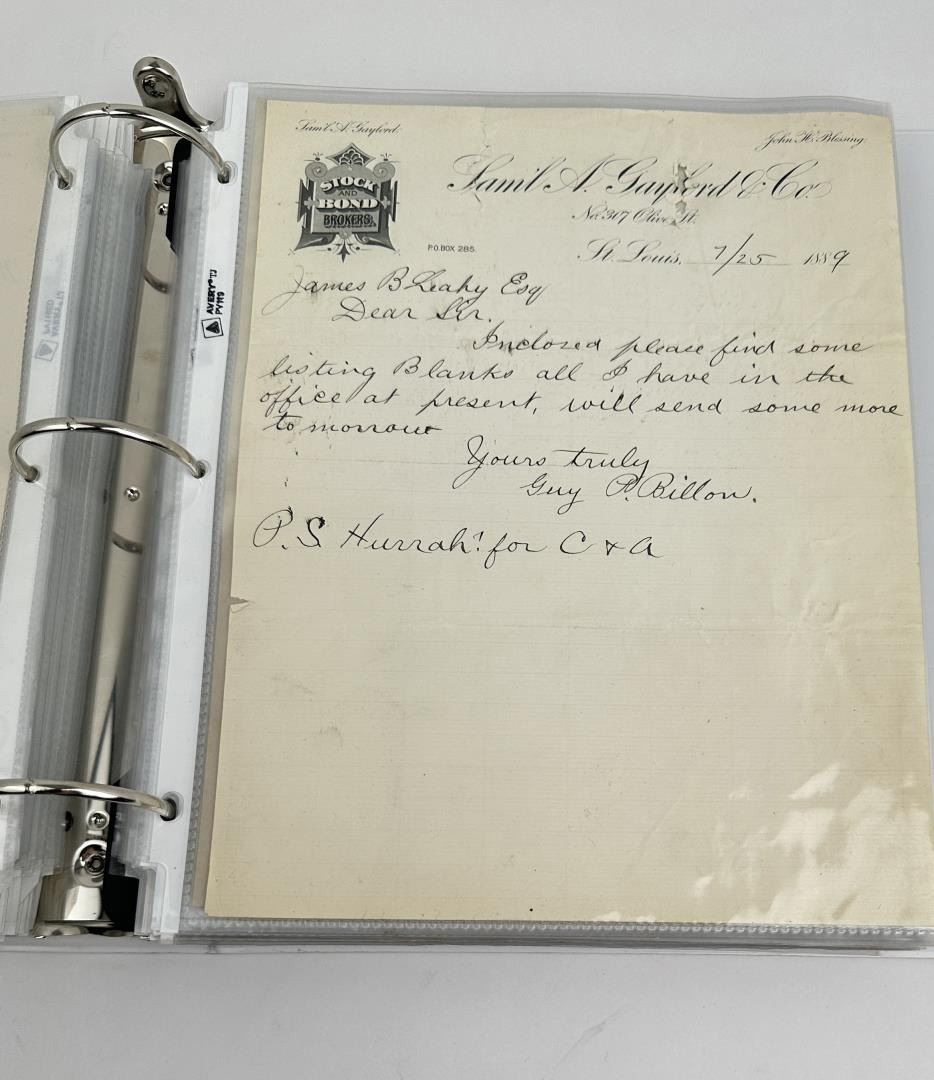 Sam'l A. Gaylord.
John H. Blessing.
STOCK
AND
BOND
BROKERS.
Sam'l A. Gaylord & Co.
No. 307 Olive St.
P.O. BOX 285.
St. Louis, 7/25 1889
James B Leahy Esq
Dear Sir.
Inclosed please find some
listing Blanks all I have in the
office at present, will send some more
to morrow
Yours truly
Guy P. Billon.
P.S. Hurrah! for C & A
AVERY®
PV119